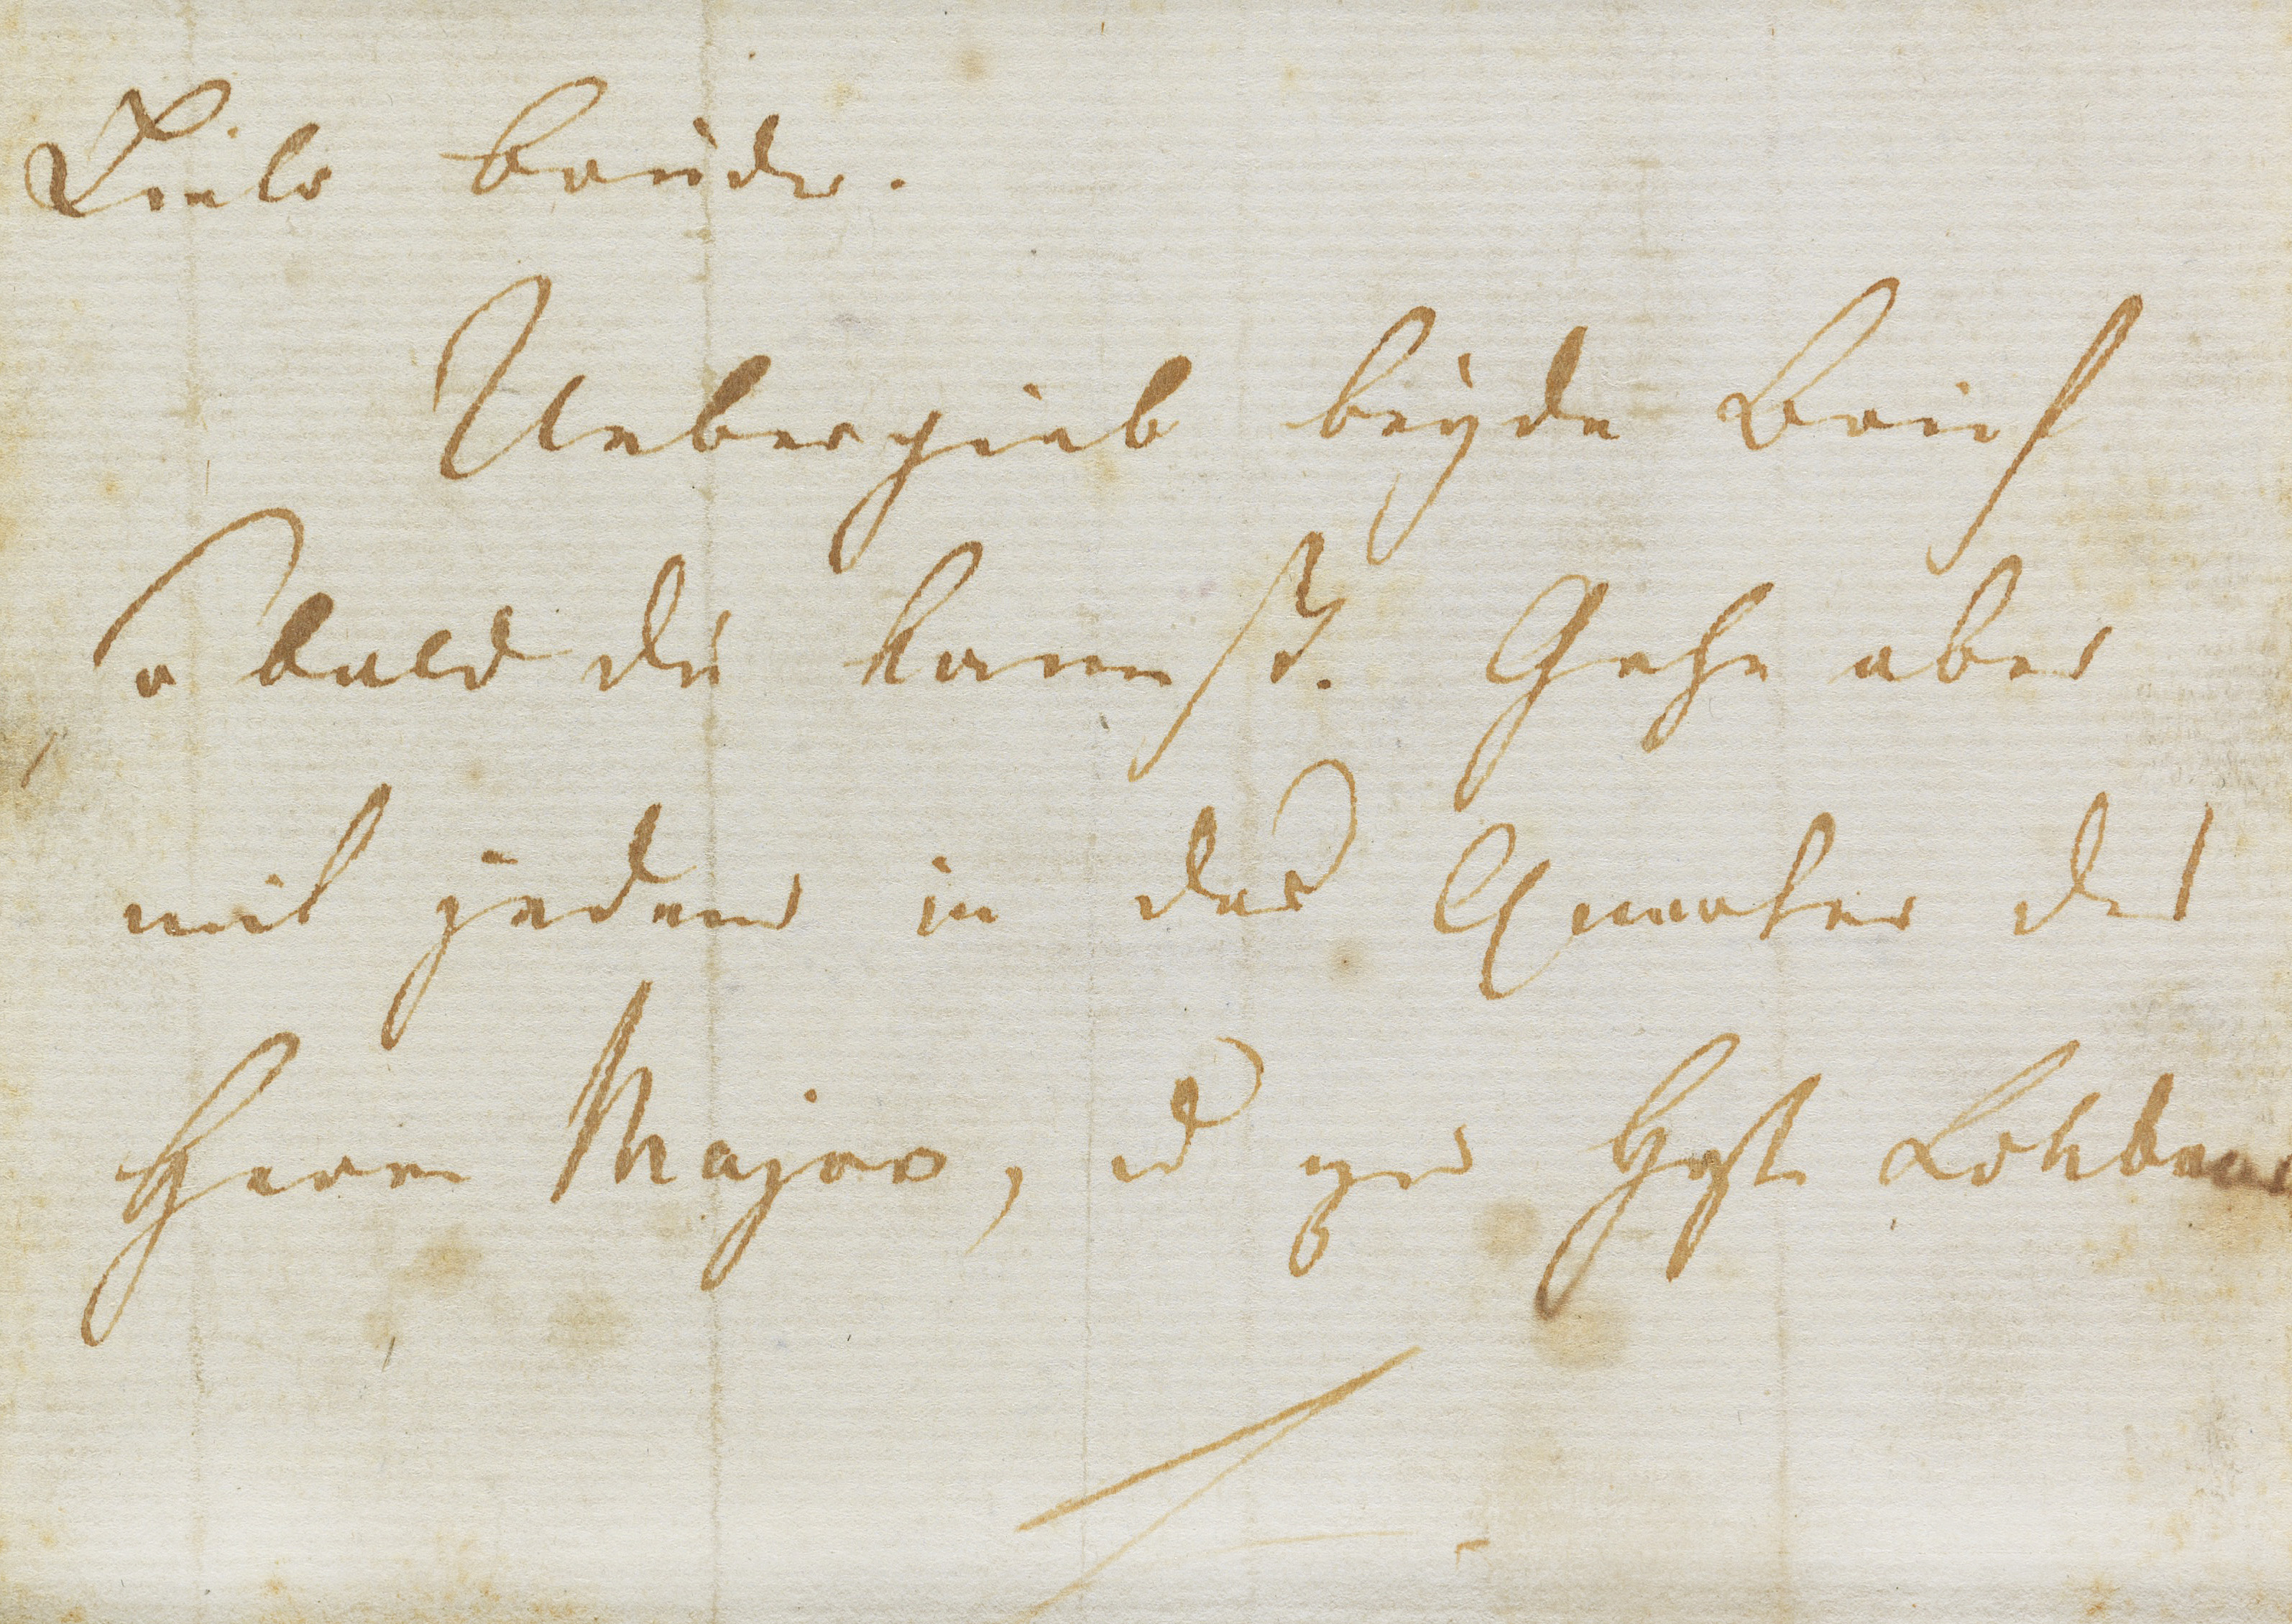 Lieber bruder.
Uebergieb beyde Brief
so bald du kannst. Gehe aber
mit jeden in das Quartier des
Herrn Major, und zur